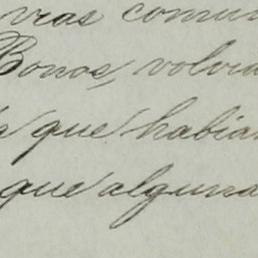 vras comun
Bonos, volvia
a que habian
que alguna